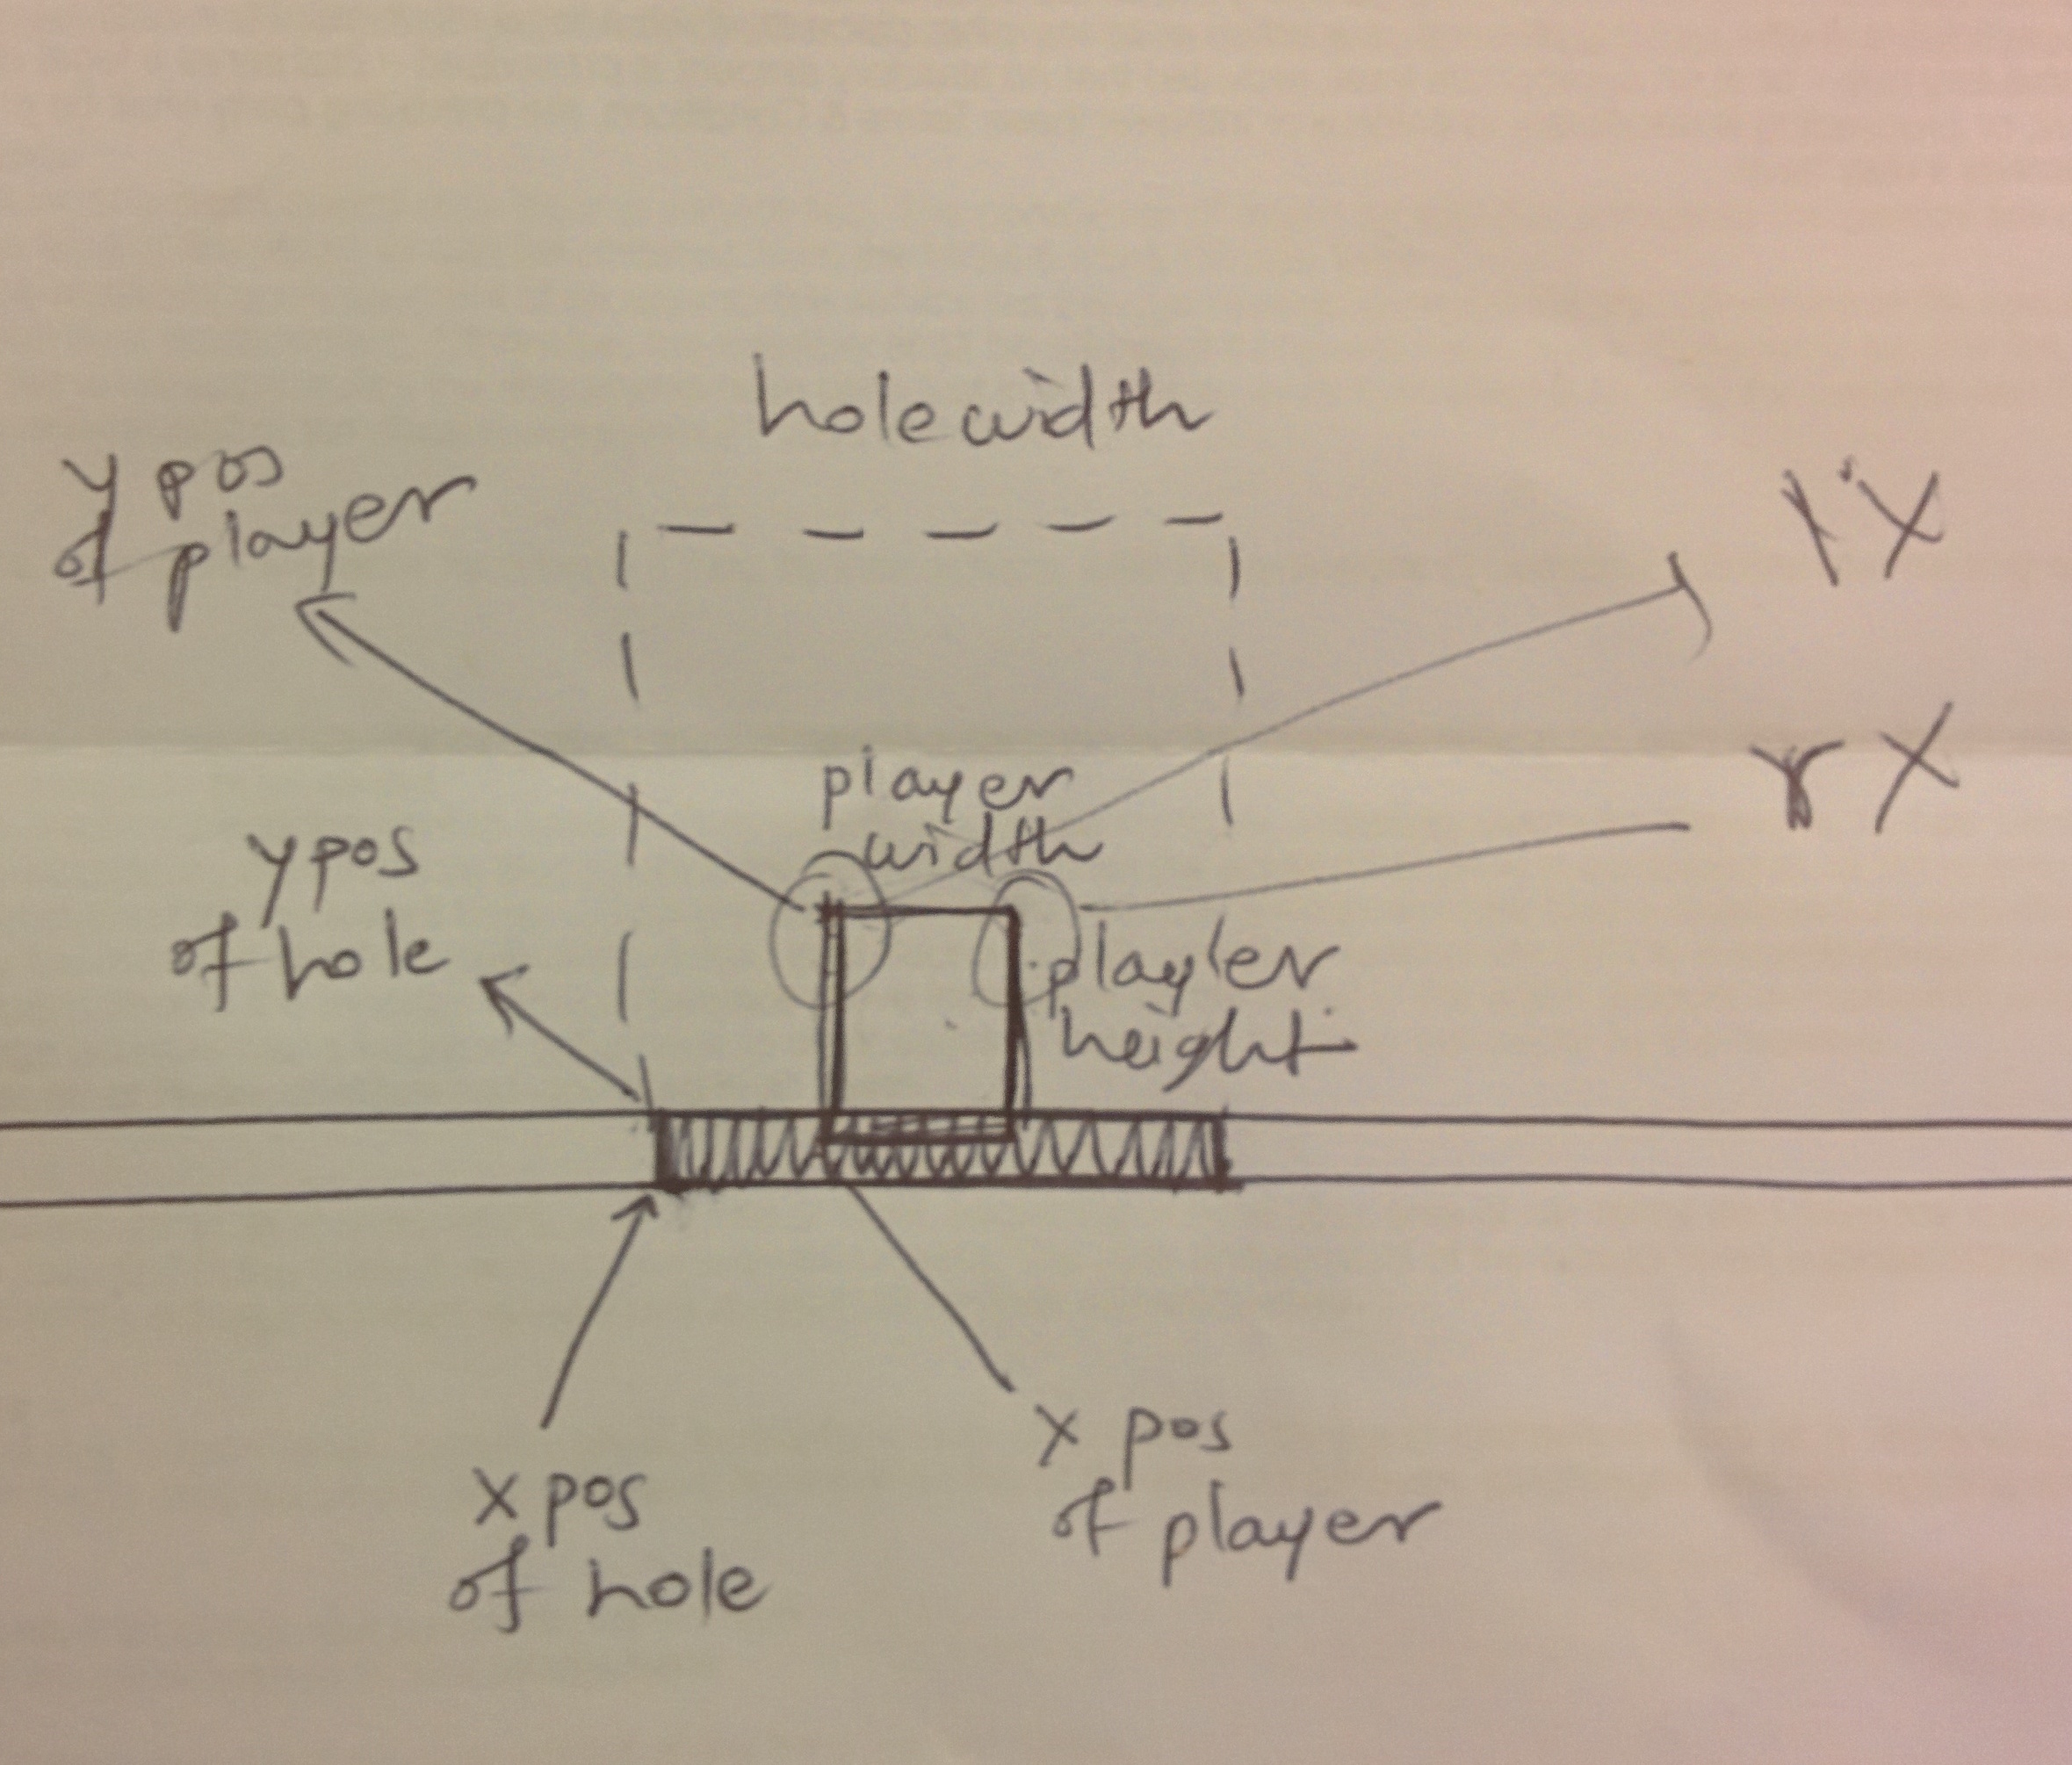 holewidth
y pos
of player
lX
rX
player
width
ypos
of hole
player
height
x pos
of player
x pos
of hole